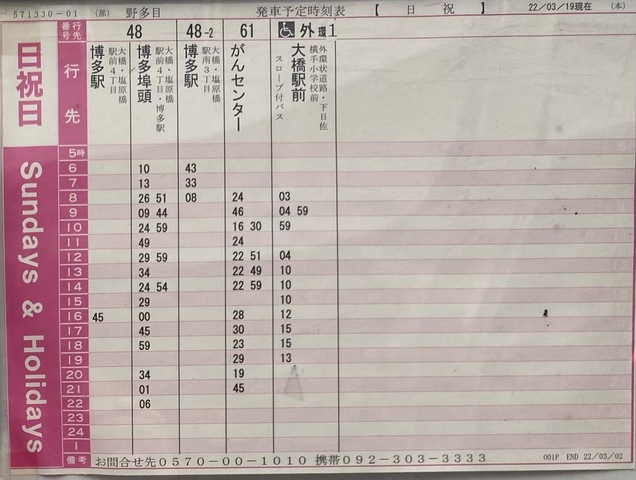 571330-01 (那) 野多目 発車予定時刻表 【 日 祝 】 22/03/19現在 (本)
日祝日
Sundays & Holidays
行先番号 48 48-2 61 外環1
行先
博多駅 大橋・塩原橋 駅前4丁目
博多埠頭 大橋・塩原橋 駅前4丁目・博多駅
博多駅 大橋・塩原橋 駅南3丁目
がんセンター
大橋駅前 外環状道路・下日佐 横手小学校前 スロープ付バス
5時
6 10 43
7 13 33
8 26 51 08 24 03
9 09 44 46 04 59
10 24 59 16 30 59
11 49 24
12 29 59 22 51 04
13 34 22 49 10
14 24 54 22 59 10
15 29 10
16 45 00 28 12
17 45 30 15
18 59 23 15
19 29 13
20 34 19
21 01 45
22 06
23
24
1
備考 お問合せ先0570-00-1010 携帯092-303-3333 001P END 22/03/02